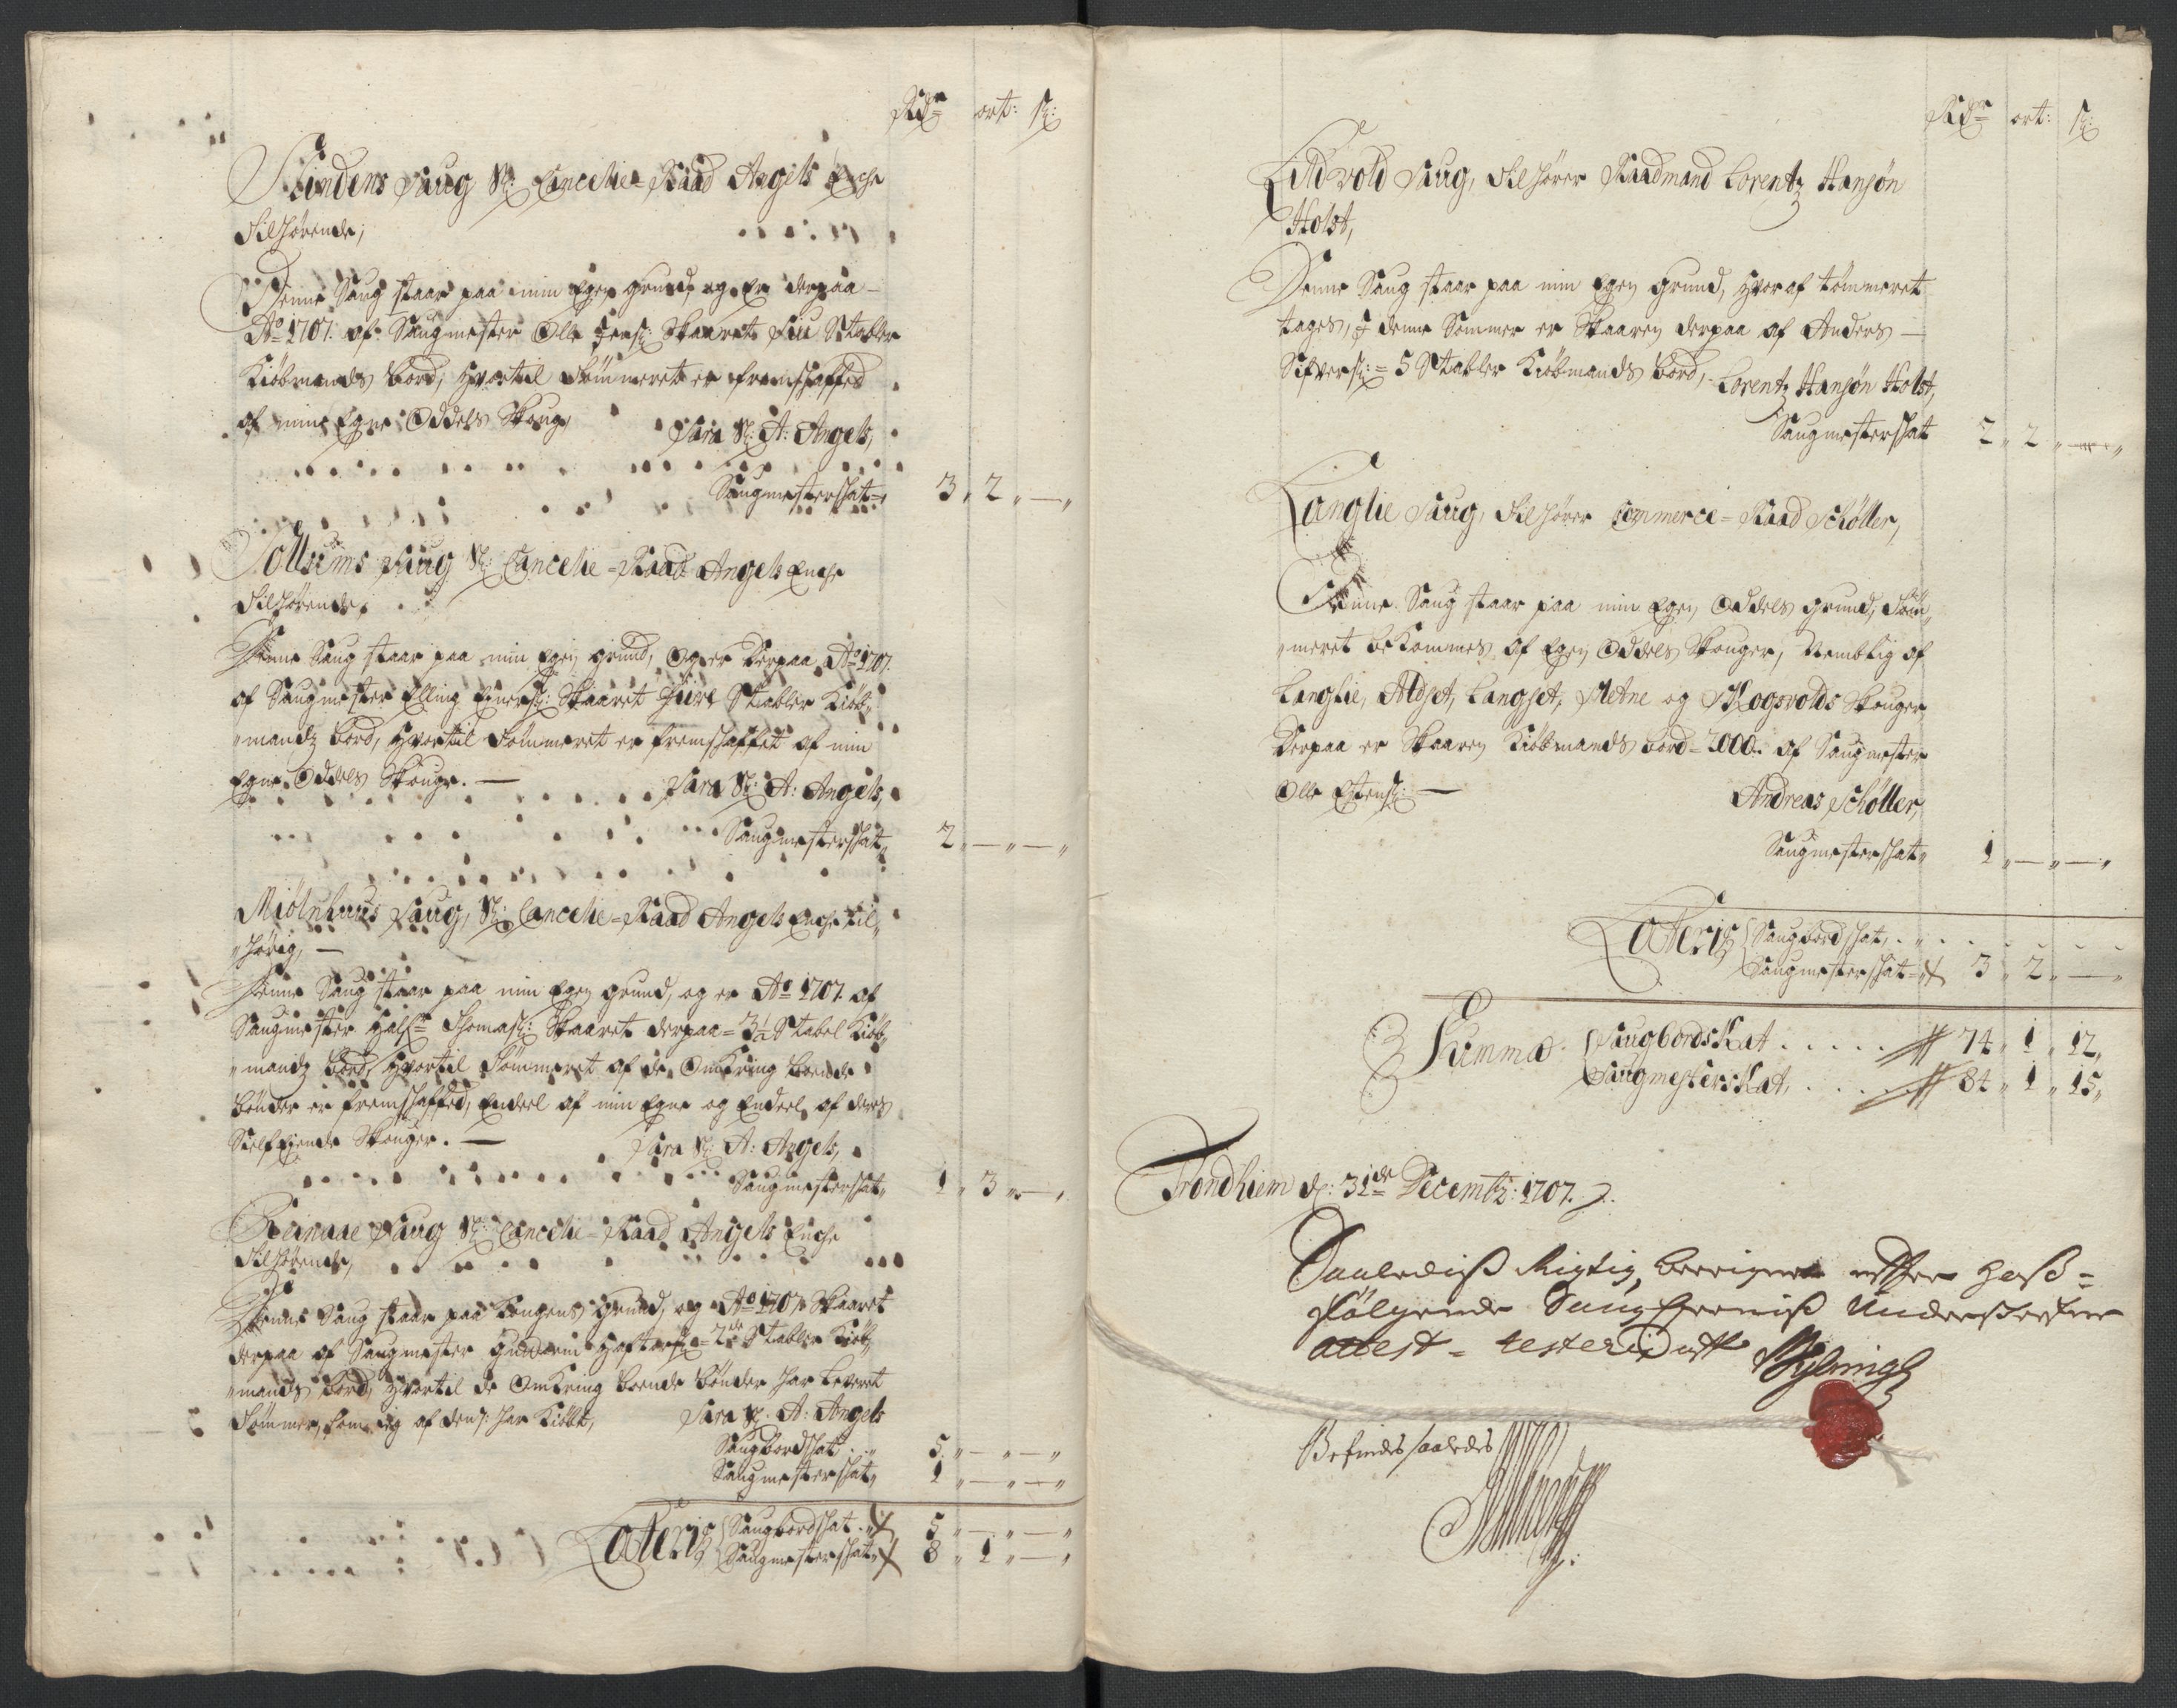 Rdr ort: sk:
Sindens Saug Sl: Cancelie-Raad Angels Enche
Tilhørende,
Denne Saug staar paa min Egen grund, og er derpaa
Ao 1707. af Saugmester Olle Jensk: Skaaret Siu Stabler
Kiöbmands bord, hvortil Tömmeret er fremskaffed
af min Egne Oddels Skoug,
Sara Sl: A: Angels,
Saugmesterskat 3 " 2 " — "
Sollsems Saug Sl: Cancelie-Raad Angels Enche
Tilhørende,
Denne Saug staar paa min Egen grund, Og er Derpaa Ao 1707.
af Saugmester Elling Skaaret fiire Stabler Kiöb-
mandz bord, hvortil Tömmeret er fremskaffet af min
Egne Oddels Skouge. —
Sara Sl: A: Angels,
Saugmesterskat 2 " — " — "
Miölnhuus Saug, Sl: Cancelie-Raad Angels Enche til-
hørig, —
Denne Saug staar paa min Egen grund, og er Ao 1707. af
Saugmester Thomask: Skaaret derpaa = 3½ Stabel Kiöb-
mandz bord, hvortil Tömmeret af de Omkring boende
bönder er fremskaffed, Endeel af min Egne og Endeel af deres
Selfeiende Skouger. —
Sara Sl: A: Angels,
Saugmesterskat 1 " 3 " — "
Reinaae Saug Sl: Cancelie-Raad Angels Enche
Tilhørende,
Denne Saug staar paa Kongens Grund, og Ao 1707. Skaaret
derpaa af Saugmester = 2de Stabler Kiöb-
mands bord, hvortil de Omkring boende bönder har leveret
Tömmer, som ieg af dem har Kiöbt,
Sara Sl: A: Angels
Saugbordskat 5 " — " — "
Saugmesterskat 1 " — " — "
Lateris Saugbordskat 5 " — " — "
Saugmesterskat 8 " 1 " — "
Rdr ort: sk:
Lidvold Saug, Tilhører Raadmand Lorentz Hansøn
Holst,
Denne Saug staar paa min Egen grund, hvoraf tömmeret
tages, I denne Sommer er Skaaren derpaa af Anders —
Sifversk: = 5 Stabler Kiöbmands bord,
Lorentz Hansøn Holst,
Saugmesterskat 2 " 2 " — "
Langlie Saug, Tilhører Commerce-Raad Schøller,
Denne Saug staar paa min Egen Oddels grund, Töm-
meret bekommes af Egen Oddels Skouger, Nemblig af
Langlie, Aldset, Langset, Mætne og Skogsvolds Skouger
Derpaa er Skaaren Kiöbmands bord = 2000. af Saugmester
Olle Estensk: —
Andreas Schøller,
Saugmesterskat 1 " — " — "
Lateris Saugbordskat, - - -
Saugmesterskat 3 " 2 " — "
Summa Saugbordskat . . . . . 74 " 1 " 12 "
Saugmesterskat, . . . . 84 " 1 " 15 "
Trondhiem d: 31de Decembr: 1707.
Saaledis Rigtig, hoß-
fölgende
attest = testerer
Befindes saaledes